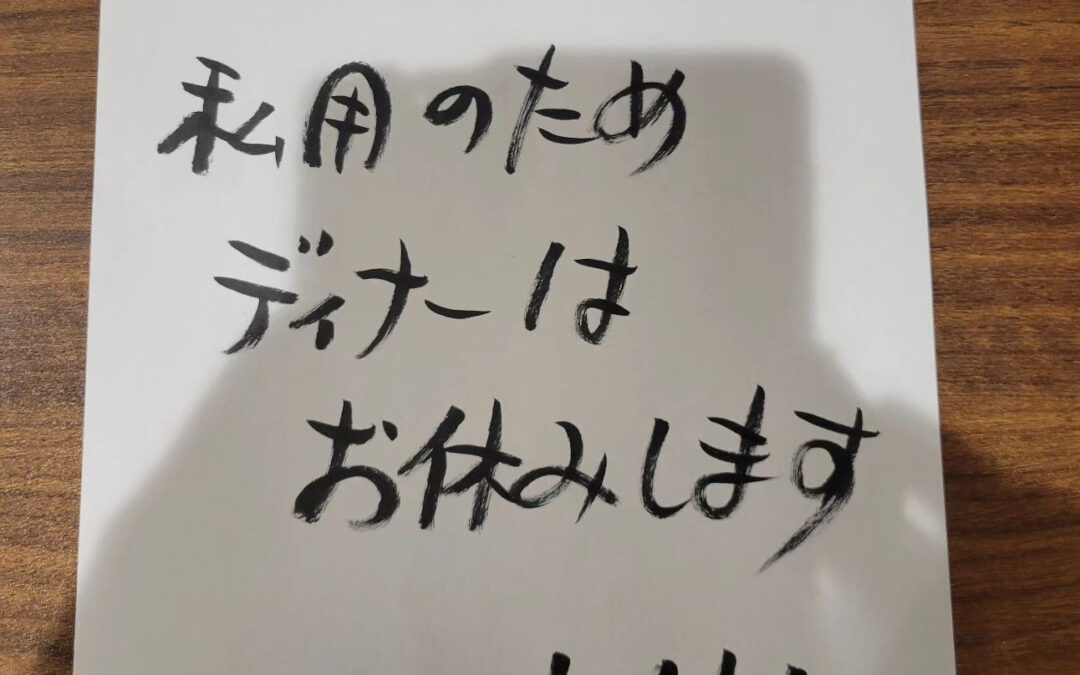 私用のため
ディナーは
お休みします